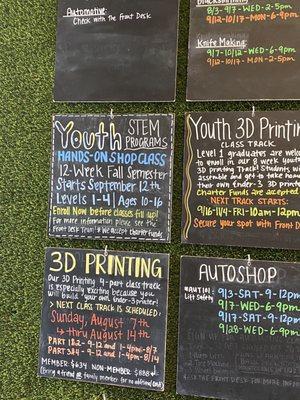 Automotive:
Check with the Front Desk
8/3-9/7-WED-2-5pm
9/12-10/17-MON-6-9pm
Knife Making:
9/7-10/12-WED-6-9pm
9/12-10/17-MON-2-5pm
Youth STEM PROGRAMS
HANDS-ON SHOP CLASS
12-Week Fall Semester
Starts September 12th
Levels 1-4 | Ages 10-16
Enroll Now before classes fill up!
For more information please see the
Front Desk Team! & We accept Charter Funds
Youth 3D Printin
CLASS TRACK
Level 1 graduates are welco
to enroll in our 8 week youth
3D printing Track! Students wi
assemble and get to take hom
their own Ender-3 3D printe
Charter Funds are accepted
NEXT TRACK STARTS:
9/16-11/4-FRI-10am-12pm
Secure your spot with Front D
3D PRINTING
Our 3D Printing 4-part class track
is especially exciting because you
will build your own Ender-3 printer!
NEXT CLASS TRACK IS SCHEDULED:
Sunday, August 7th
→ thru August 14th
PART 1&2 - 9-12 and 1-4pm-8/7
PART 3&4 - 9-12 and 1-4pm-8/14
MEMBER: $634 NON-MEMBER: $888
(Bring a friend or family member for no additional cost)
AUTOSHOP
Lift Safety
9/3-SAT-9-12pm
9/7-WED-6-9pm
9/17-SAT-9-12pm
9/28-WED-6-9pm